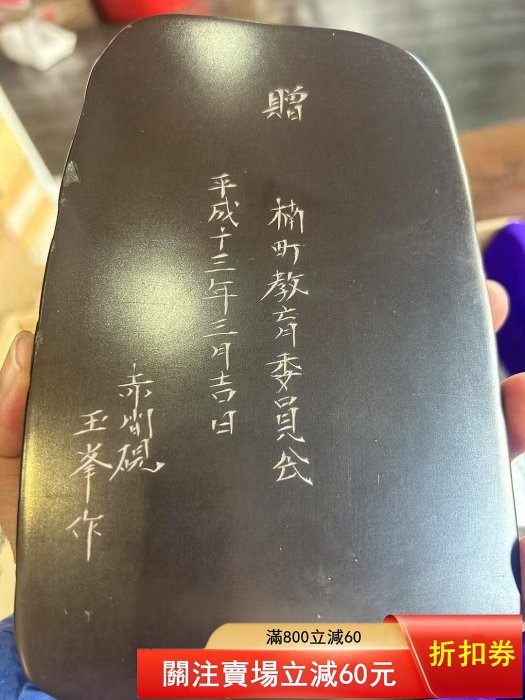 贈
楠町教育委員会
平成十三年三月吉日
赤間硯
玉峯作
滿800立減60
關注賣場立減60元
折扣券